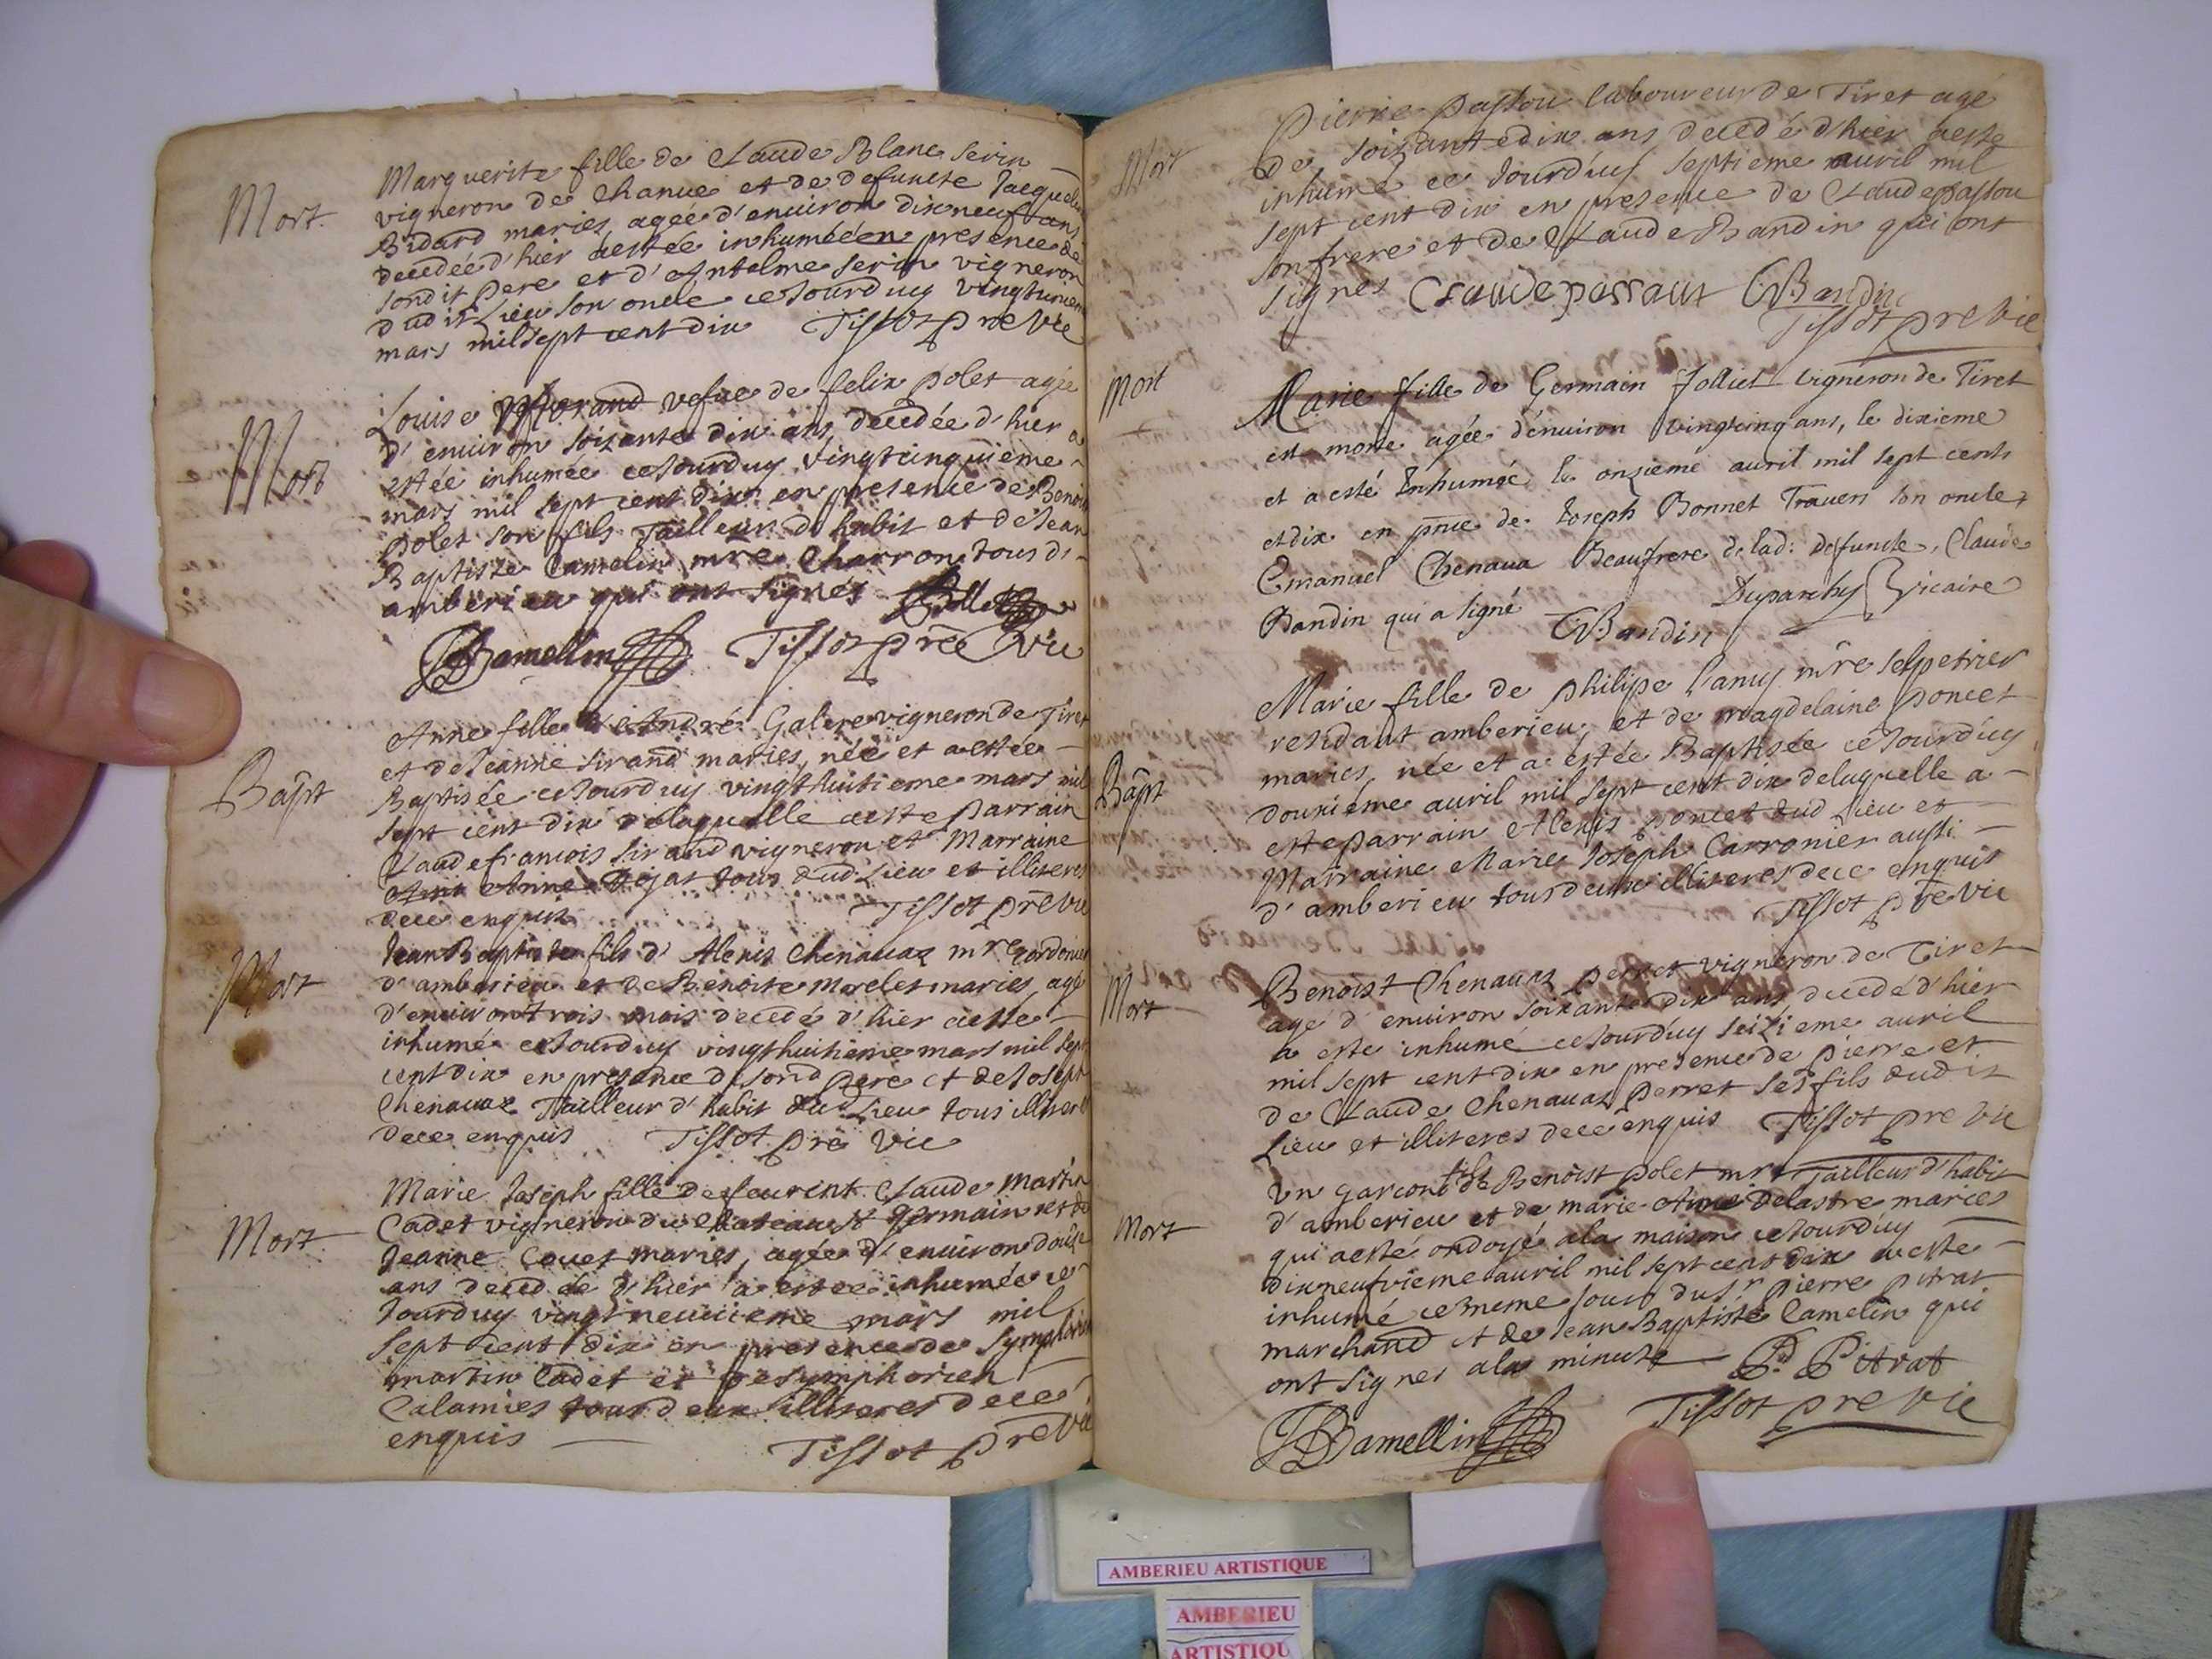 Mort
Marguerite fille de Claude Blanc serin
vigneron de Chanue et de defuncte Jacqueline
Bidard maries, agée d'environ dixneuf ans
decedée d'hier a esttée inhumée en presence de
sondit pere et d'Antelme serin vigneron
dudit Lieu son oncle ce Jourduy vingtunieme
mars mil sept cent dix Tissot pre Vic
Mort
Louise Morand vefue de felix polet agée
d'enuiron soizante dix ans decedée d'hier a
estée inhumée ce Jourduy vingtcinquieme
mars mil sept cent dix en presence de Benoit
polet son fils Tailleur d'habit et de Jean
Baptiste Camelin mre Charron tous d'
amberieu qui ont signés
JBamellin Tissot pre Vic
Bapt
Anne fille d'André Galere vigneron de Tiret
et de Jeanne sirand maries, née et a estée
Baptisée ce Jourduy vingthuitieme mars mil
sept cent dix delaquelle a esté parrain
Claude francois sirand vigneron et Marraine
Anne tous dud Lieu et illiteres
dece enquis Tissot pre Vic
Mort
Jean Baptiste fils d'Alexis Chenauaz mre Cordonier
d'amberieu et de Benoite Morelet maries, agé
d'enuiron trois mois decedé d'hier a esté
inhumé ce Jourduy vingthuitieme mars mil sept
cent dix en presence de sond pere et de Joseph
Chenauaz Tailleur d'habit dud Lieu tous illiteres
dece enquis Tissot pre Vic
Mort
Marie Joseph fille de Claude Martin
Cadet vigneron du Chateau st germain et de
Jeanne maries, agée d'enuiron douze
ans decedée d'hier a estée inhumée ce
Jourduy vingt neuuieme mars mil
sept cent dix en presence de Symphorien
martin Cadet et de symphorien
Calamies tous deux illiteres dece
enquis Tissot pre Vic
Mort
Pierre passou laboureur de Tiret agé
de soizante dix ans decedé d'hier a esté
inhumé ce Jourduy septieme auril mil
sept cent dix en presence de Claude passou
son frere et de Claude Bandin qui ont
signés Claude passaut CBandin
Tissot pre Vic
Mort
Marie fille de Germain Jolliet Vigneron de Tiret
est morte agée d'enuiron vingtcinq ans, le dixieme
et a esté Inhumée le onzieme auril mil sept cents
et dix en pnce de Joseph Bonnet Trauers son oncle,
Emanuel Chenaua Beaufrere de lad: defuncte, Claude
Bandin qui a signé CBandin Duparchy Vicaire
Bapt
Marie fille de philipe Lamy mre selpetrier
residant amberieu, et de magdelaine poncet
maries, née et a estée Baptisée ce Jourduy
douxiéme auril mil sept cent dix delaquelle a
esté parrain Alexis poncet dud Lieu et
Marraine Marie Joseph Carronier aussi
d'amberieu tous deux illiteres dece enquis
Tissot pre Vic
Mort
Benoist Chenauaz perret vigneron de Tiret
agé d'enuiron soixante dix ans decedé d'hier
a esté inhumé ce Jourduy seizieme auril
mil sept cent dix en presence de pierre et
de Claude Chenauaz perret ses fils dudit
Lieu et illiteres dece enquis Tissot pre Vic
Mort
Un garcon fils de Benoist polet mre Tailleur d'habit
d'amberieu et de marie Aimé Delastre maries
qui a esté ondoyé a la maison ce Jourduy
dixneufvieme auril mil sept cent dix a esté
inhumé ce meme Jour du sr pierre pitrat
marchand et de Jean Baptiste Camelin qui
ont signes a la minute P. Pitrat
JBamellin Tissot pre Vic
AMBERIEU ARTISTIQUE
AMBERIEU
ARTISTIQU